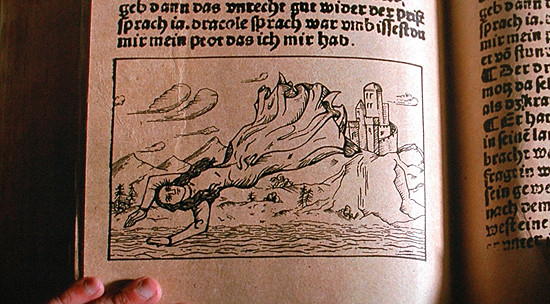 geb dann das vnrecht gut wider der prist
sprach ia. dracole sprach war vmb issest du
mir mein prot das ich mir hab.
geb dann d
sprach ia. d
mir mein p
er vō stun
¶ Der d
als dz kra
¶ Er hat
in seinē lan
bracht w
fragt in w
sein gewe
nach dem
west eine